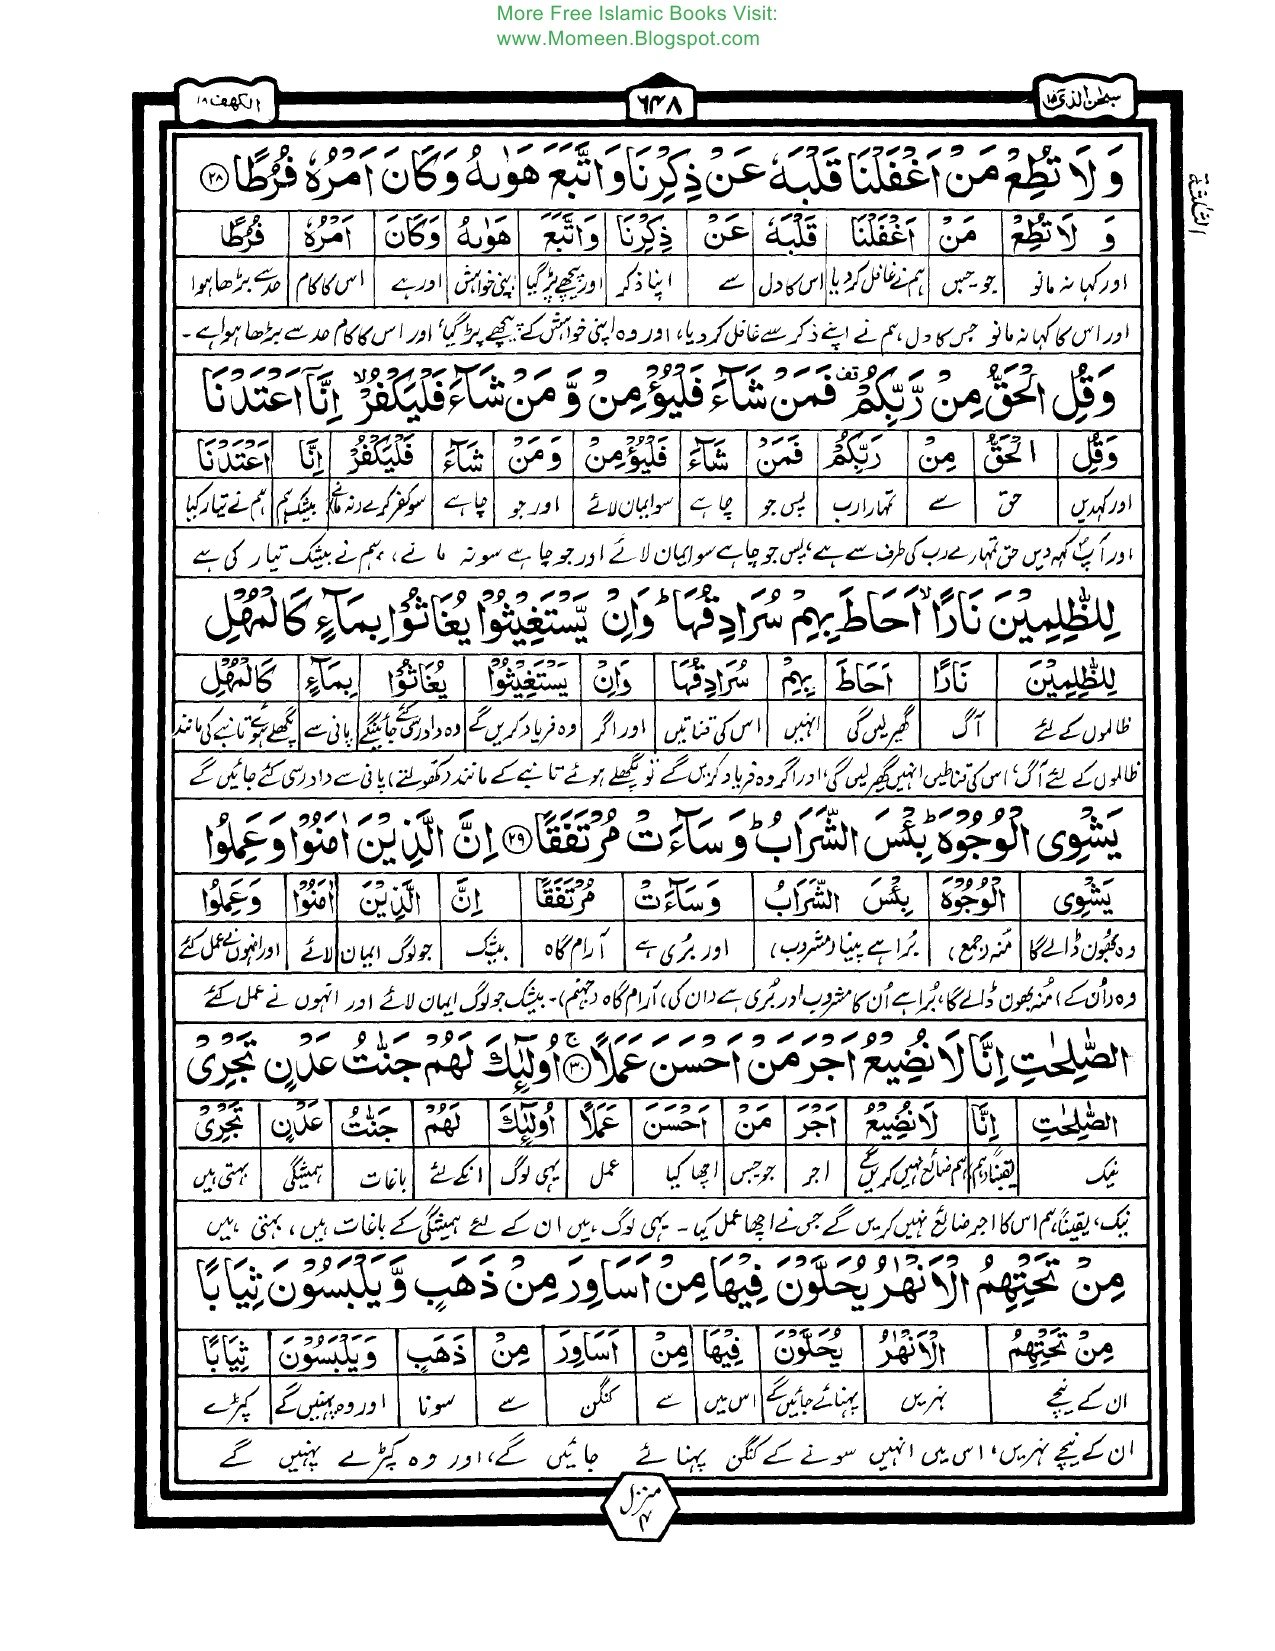 More Free Islamic Books Visit:
www.Momeen.Blogspot.com
سبحٰن الذی ۱۵
٦٤٨
الکھف ۱۸
الثلثة
وَلَا تُطِعْ مَنْ اَغْفَلْنَا قَلْبَهٗ عَنْ ذِكْرِنَا وَاتَّبَعَ هَوٰىهُ وَكَانَ اَمْرُهٗ فُرُطًا ۲۸
وَ لَا تُطِعْ مَنْ اَغْفَلْنَا قَلْبَهٗ عَنْ ذِكْرِنَا وَاتَّبَعَ هَوٰىهُ وَكَانَ اَمْرُهٗ فُرُطًا
اور کہا نہ مانو جو جس ہم نے غافل کر دیا اس کا دل سے اپنا ذکر اور پیچھے پڑ گیا اپنی خواہش اور ہے اس کا کام حد سے بڑھا ہوا
اور اس کا کہا نہ مانو جس کا دل ہم نے اپنے ذکر سے غافل کر دیا، اور وہ اپنی خواہش کے پیچھے پڑ گیا، اور اس کا کام حد سے بڑھا ہوا ہے ۔
وَقُلِ الْحَقُّ مِنْ رَّبِّكُمْ قف فَمَنْ شَآءَ فَلْيُؤْمِنْ وَّ مَنْ شَآءَ فَلْيَكْفُرْ ۙ اِنَّآ اَعْتَدْنَا
وَقُلِ الْحَقُّ مِنْ رَبِّكُمْ فَمَنْ شَآءَ فَلْيُؤْمِنْ وَمَنْ شَآءَ فَلْيَكْفُرْ اِنَّا اَعْتَدْنَا
اور کہدیں حق سے تمہارا رب پس جو چاہے سو ایمان لائے اور جو چاہے سو کفر کرے (نہ مانے) بیشک ہم ہم نے تیار کیا
اور آپ کہہ دیں حق تمہارے رب کی طرف سے ہے، پس جو چاہے سو ایمان لائے اور جو چاہے سو نہ مانے، ہم نے بیشک تیار کی ہے
لِلظّٰلِمِيْنَ نَارًا ۙ اَحَاطَ بِهِمْ سُرَادِقُهَا ؕ وَاِنْ يَّسْتَغِيْثُوْا يُغَاثُوْا بِمَآءٍ كَالْمُهْلِ
لِلظّٰلِمِيْنَ نَارًا اَحَاطَ بِهِمْ سُرَادِقُهَا وَاِنْ يَسْتَغِيْثُوْا يُغَاثُوْا بِمَآءٍ كَالْمُهْلِ
ظالموں کے لئے آگ گھیر لیں گی انہیں اس کی قناتیں اور اگر وہ فریاد کریں گے وہ دادرسی کئے جائینگے پانی سے پگھلے ہوئے تانبے کی مانند
ظالموں کے لئے آگ، اس کی قناطیں انہیں گھیر لیں گی، اور اگر وہ فریاد کریں گے تو پگھلے ہوئے تانبے کے مانند (کھولتے) پانی سے دادرسی کئے جائیں گے
يَشْوِى الْوُجُوْهَ ؕ بِئْسَ الشَّرَابُ ؕ وَسَآءَتْ مُرْتَفَقًا ۲۹ اِنَّ الَّذِيْنَ اٰمَنُوْا وَعَمِلُوا
يَشْوِى الْوُجُوْهَ بِئْسَ الشَّرَابُ وَسَآءَتْ مُرْتَفَقًا اِنَّ الَّذِيْنَ اٰمَنُوْا وَعَمِلُوا
وہ بھون ڈالے گا منہ (جمع) بُرا ہے پینا (مشروب) اور بُری ہے آرام گاہ بیشک جو لوگ ایمان لائے اور انہوں نے عمل کئے
وہ (اُن کے) مُنہ بھون ڈالے گا، بُرا ہے اُن کا مشروب اور بُری ہے (ان کی) آرام گاہ (جہنم)۔ بیشک جو لوگ ایمان لائے اور انہوں نے عمل کئے
الصّٰلِحٰتِ اِنَّا لَا نُضِيْعُ اَجْرَ مَنْ اَحْسَنَ عَمَلًا ۳۰ ج اُولٰٓئِكَ لَهُمْ جَنّٰتُ عَدْنٍ تَجْرِىْ
الصّٰلِحٰتِ اِنَّا لَا نُضِيْعُ اَجْرَ مَنْ اَحْسَنَ عَمَلًا اُولٰٓئِكَ لَهُمْ جَنّٰتُ عَدْنٍ تَجْرِىْ
نیک یقیناً ہم ہم ضائع نہیں کریں گے اجر جو جس اچھا کیا عمل یہی لوگ انکے لئے باغات ہمیشگی بہتی ہیں
نیک، یقیناً ہم اس کا اجر ضائع نہیں کریں گے جس نے اچھا عمل کیا ۔ یہی لوگ ہیں ان کے لئے ہمیشگی کے باغات ہیں، بہتی ہیں
مِنْ تَحْتِهِمُ الْاَنْهٰرُ يُحَلَّوْنَ فِيْهَا مِنْ اَسَاوِرَ مِنْ ذَهَبٍ وَّيَلْبَسُوْنَ ثِيَابًا
مِنْ تَحْتِهِمُ الْاَنْهٰرُ يُحَلَّوْنَ فِيْهَا مِنْ اَسَاوِرَ مِنْ ذَهَبٍ وَيَلْبَسُوْنَ ثِيَابًا
ان کے نیچے نہریں پہنائے جائیں گے اس میں سے کنگن سے سونا اور وہ پہنیں گے کپڑے
ان کے نیچے نہریں، اس میں انہیں سونے کے کنگن پہنائے جائیں گے، اور وہ کپڑے پہنیں گے
منزل ۴